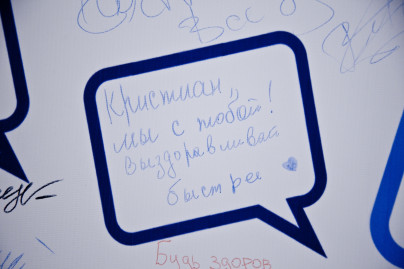 Кристиан,
мы с тобой!
выздоравливай
быстрее
Будь здоров